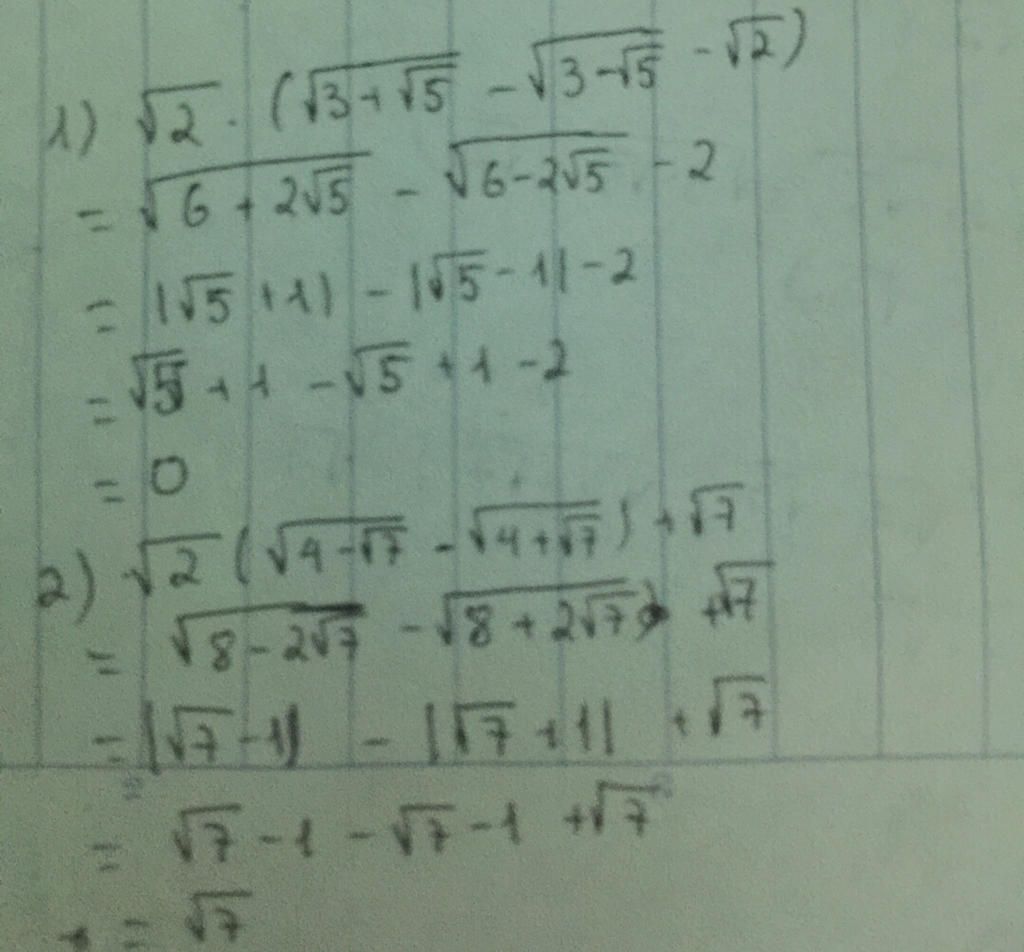 1) √2 . (√(3+√5) - √(3-√5) - √2)
= √(6 + 2√5) - √(6-2√5) - 2
= |√5 + 1| - |√5 - 1| - 2
= √5 + 1 - √5 + 1 - 2
= 0
2) √2 (√(4-√7) - √(4+√7)) + √7
= √(8-2√7) - √(8+2√7) + √7
= |√7 - 1| - |√7 + 1| + √7
= √7 - 1 - √7 - 1 + √7
= √7